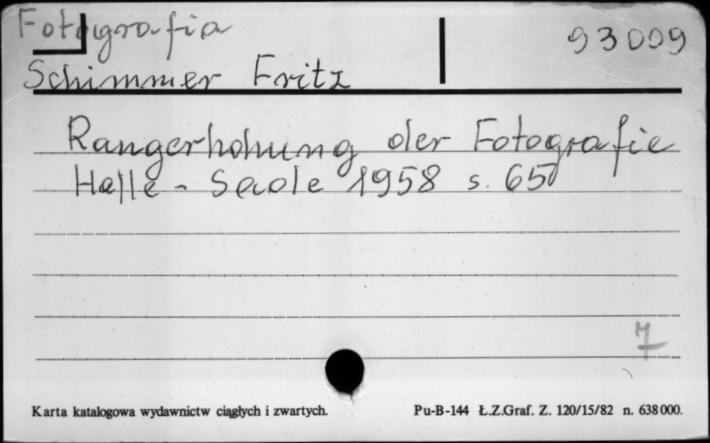 Fotografia 93009
Schimmer Fritz
Rangerhohung der Fotografie
Halle - Saale 1958 s. 65
7
Karta katalogowa wydawnictw ciągłych i zwartych. Pu-B-144 Ł.Z.Graf. Z. 120/15/82 n. 638000.